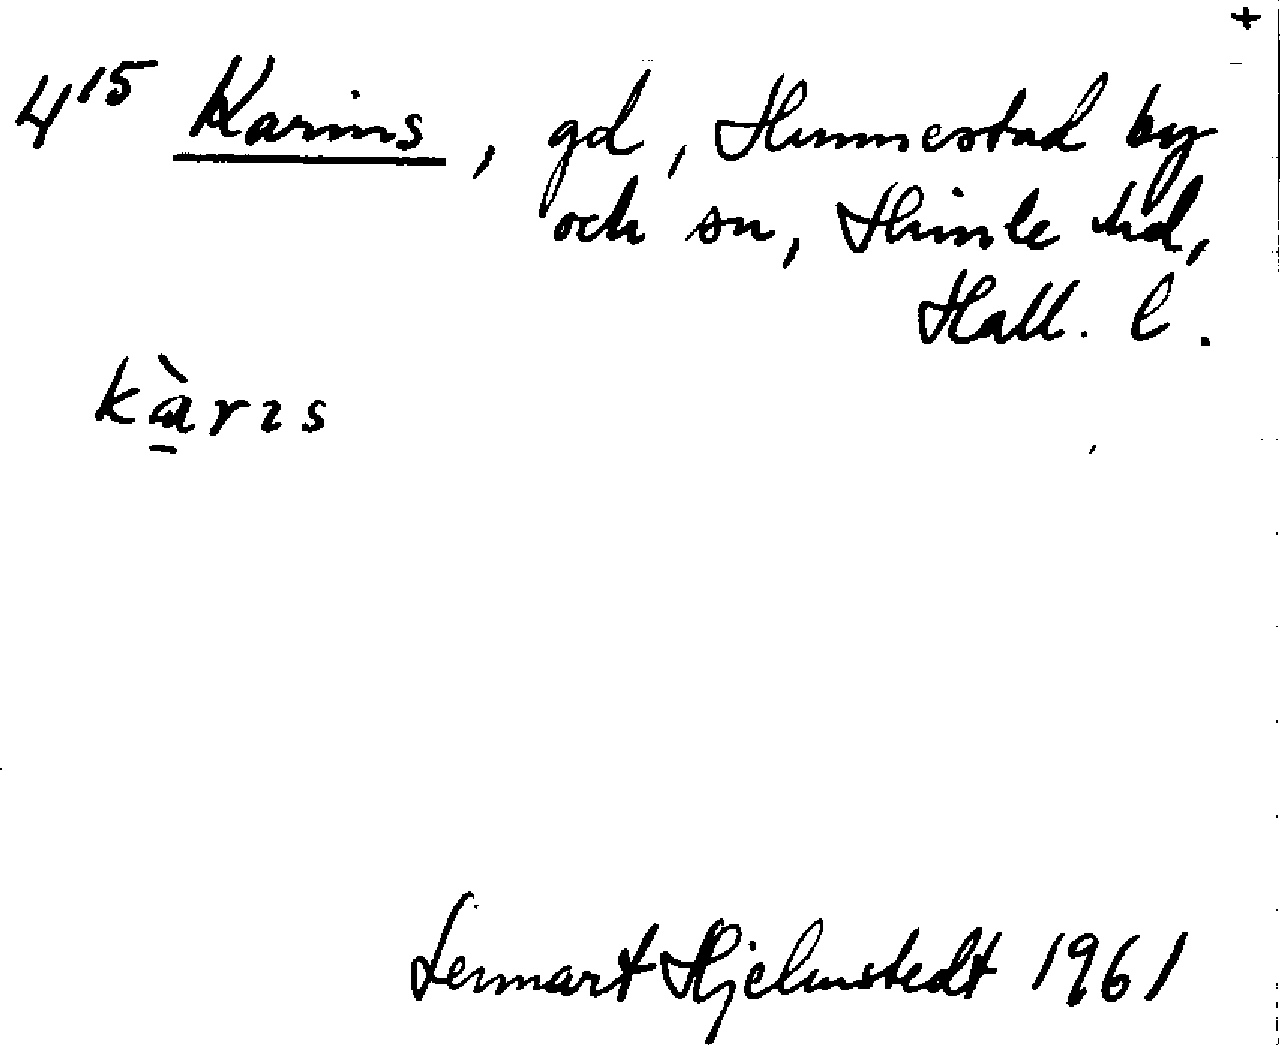 +
4¹⁵ Karins, gd, Hunnestad by
och sn, Himle hd,
Hall. l.
kàrɪs
Lennart Hjelmstedt 1961